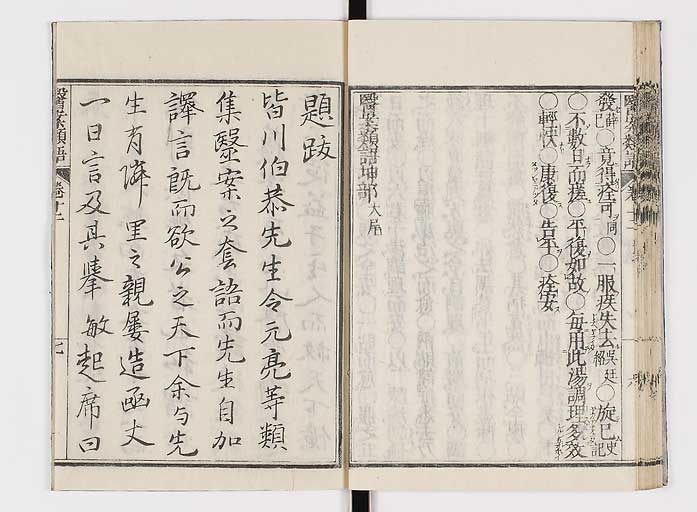 發薛己○竟得痊可同○一服疾失去吳廷紹○旋已史記
○不數日而瘥○平復如故○每用此湯調理多效
○輕快○康復○告平○痊安
醫案類語坤部大尾
題跋
皆川伯恭先生令元亮等類
集醫案之套語而先生自加
譯言既而欲公之天下余与先
生有隣里之親屢造函丈
一日言及其擧敏起席曰
醫案類語
卷十二